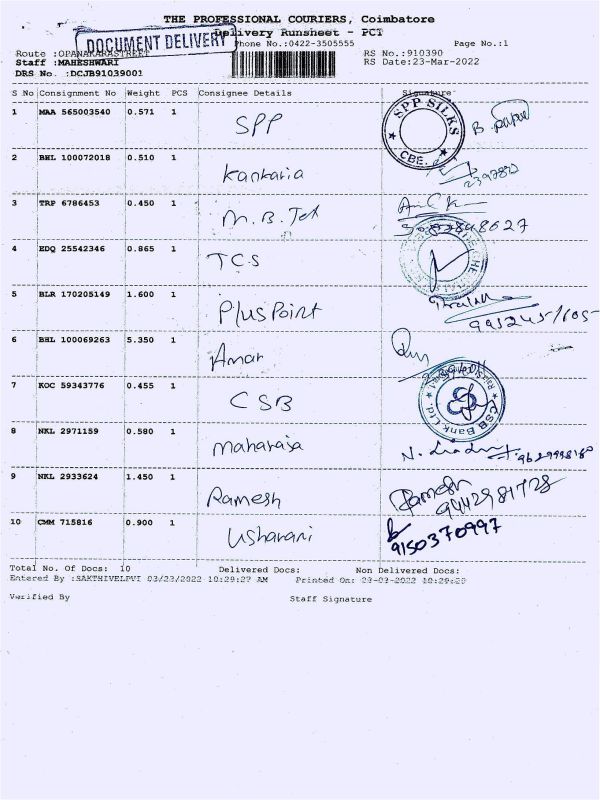 THE PROFESSIONAL COURIERS, Coimbatore
Delivery Runsheet - PCT
DOCUMENT DELIVERY
Phone No.:0422-3505555 Page No.:1
Route :OPANAKARASTREET RS No.:910390
Staff :MAHESHWARI RS Date:23-Mar-2022
DRS No. :DCJB91039001
S No Consignment No Weight PCS Consignee Details Signature
1 MAA 565003540 0.571 1 SPP SPP SILKS CBE. B.
2 BHL 100072018 0.510 1 Kankaria
3 TRP 6786453 0.450 1 M.B. Jet
4 EDQ 25542346 0.865 1 TCS
5 BLR 170205149 1.600 1 Plus Point
6 BHL 100069263 5.350 1 Amar
7 KOC 59343776 0.455 1 CSB CSB Bank Ltd.
8 NKL 2971159 0.580 1 Maharaja N.
9 NKL 2933624 1.450 1 Ramesh Ramesh
9442981728
10 CMM 715816 0.900 1 Usharani
9150370997
Total No. Of Docs: 10 Delivered Docs: Non Delivered Docs:
Entered By :SAKTHIVELPVI 03/23/2022 10:29:27 AM Printed On: 23-03-2022 10:29:29
Verified By Staff Signature